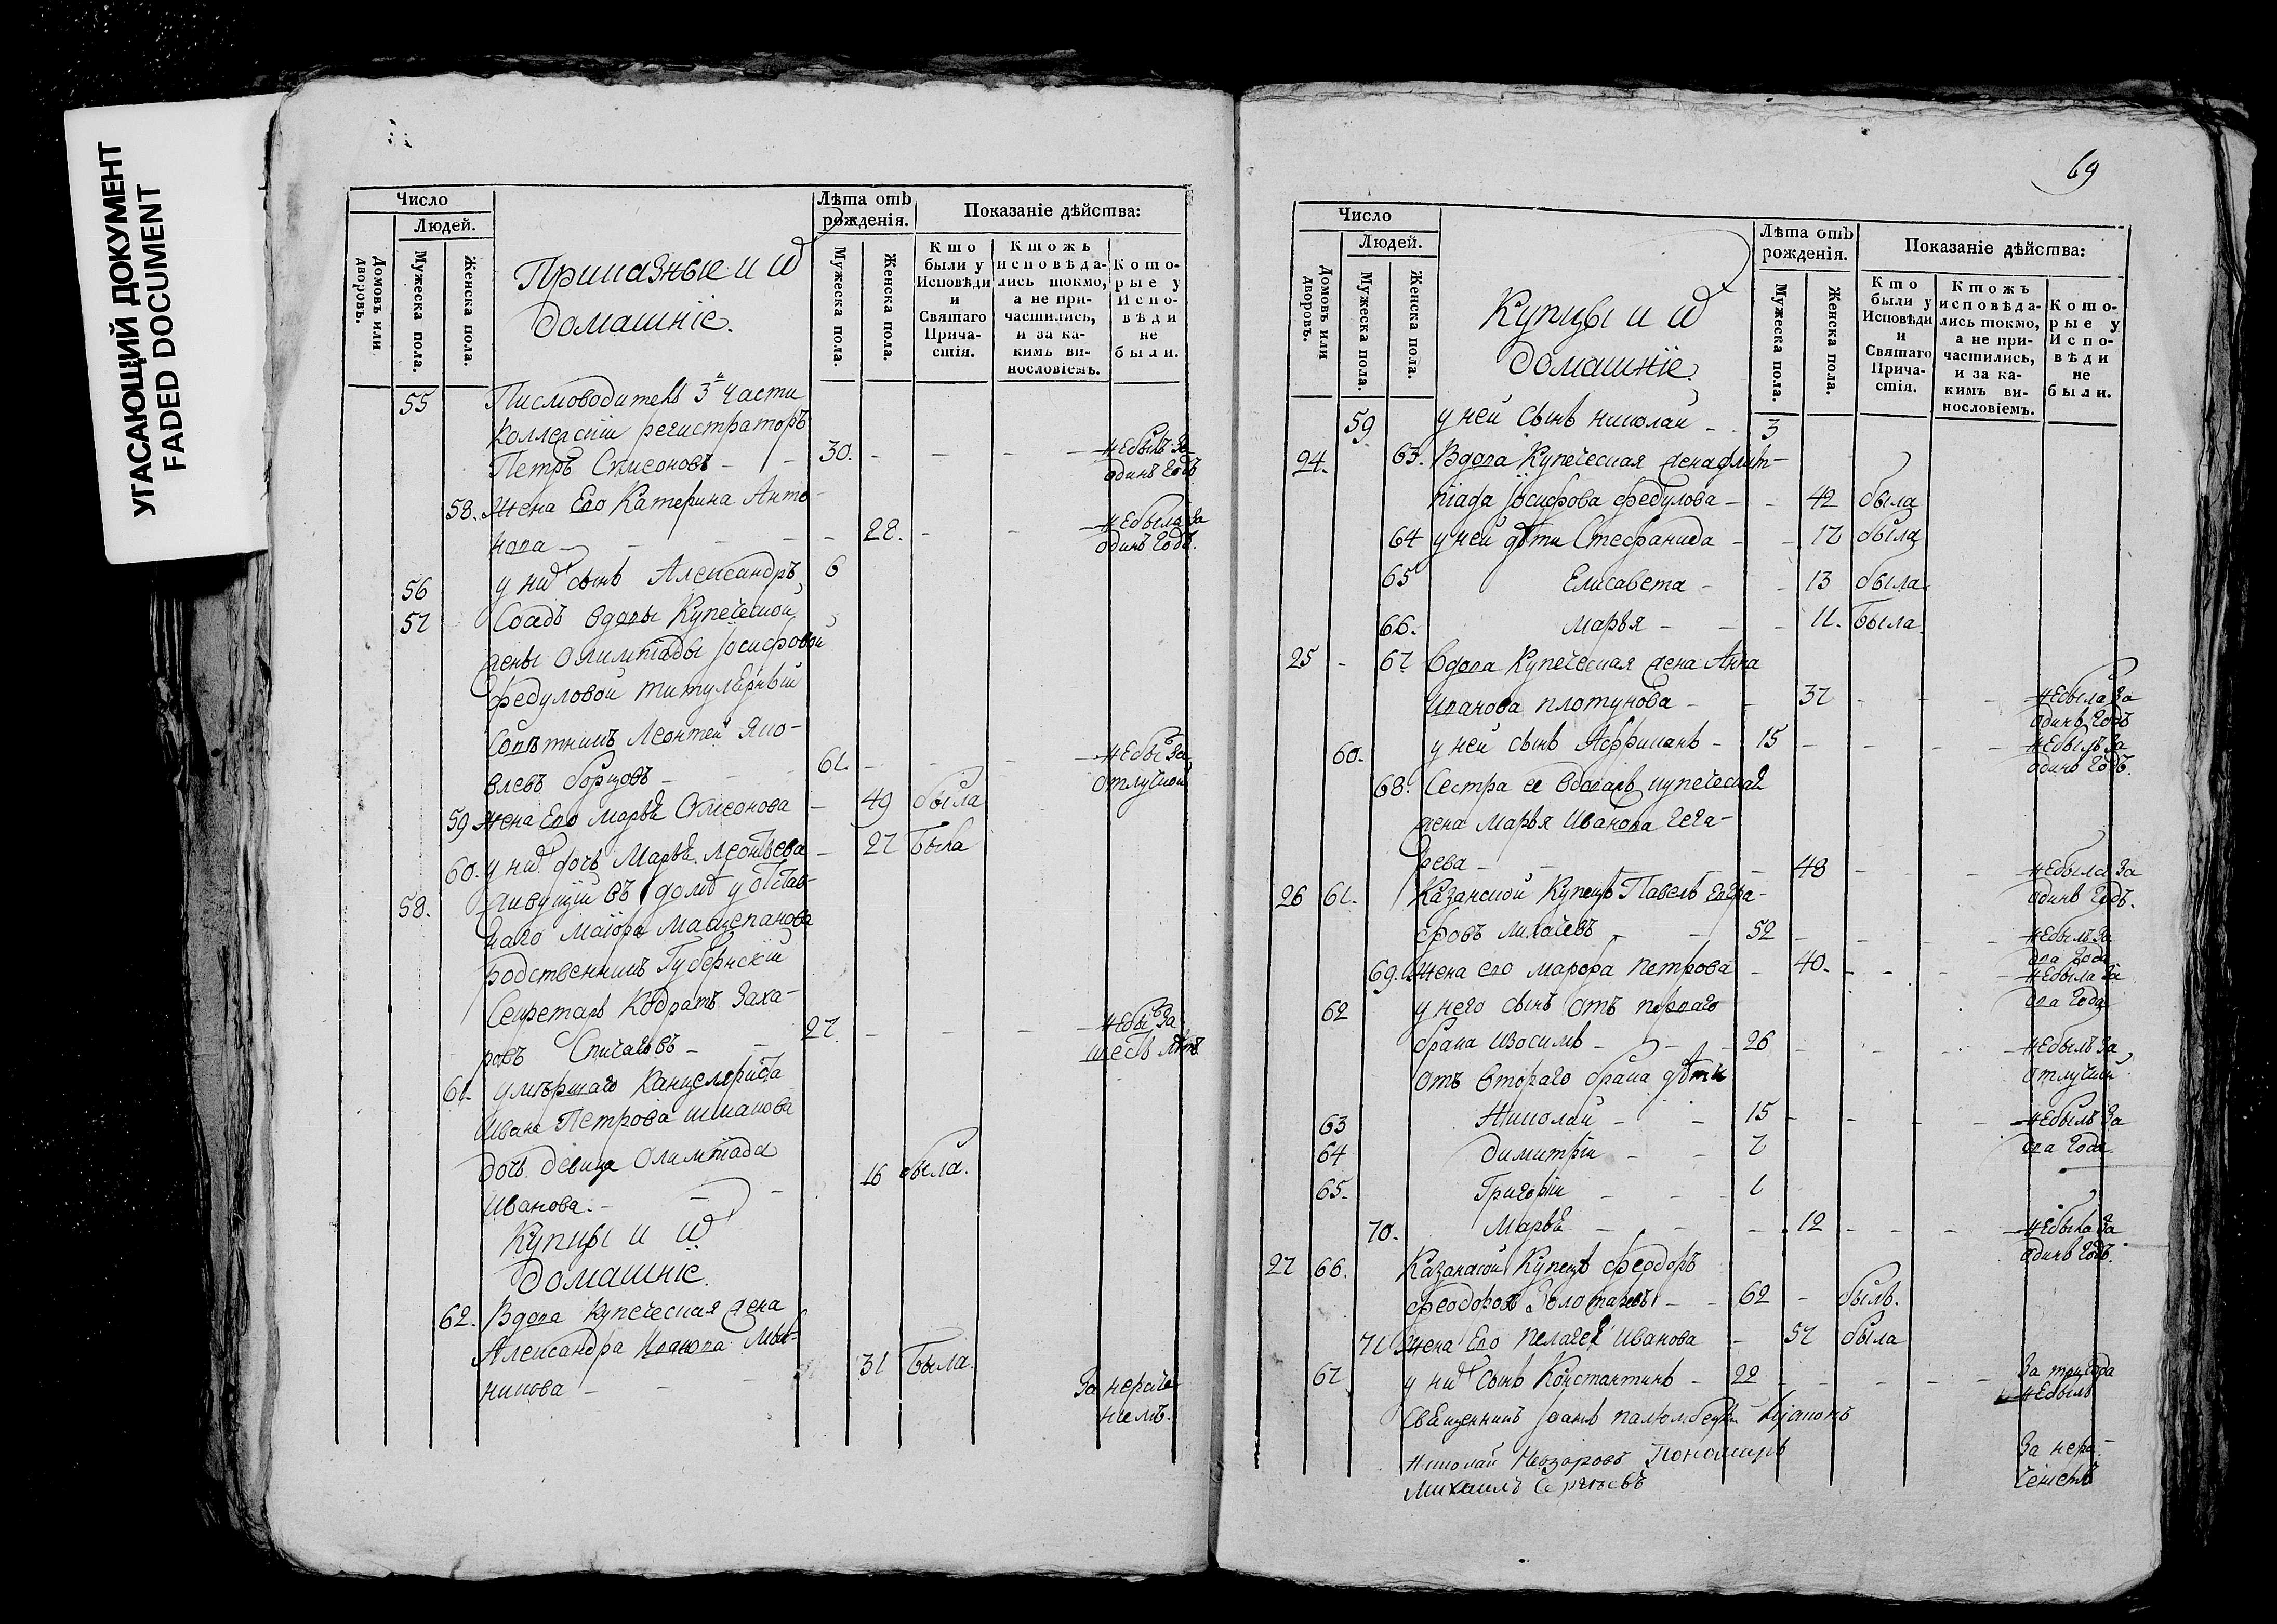 УГАСАЮЩИЙ ДОКУМЕНТ
FADED DOCUMENT
Число
Людей.
Домовъ или дворовъ.
Мужеска пола.
Женска пола.
Приказные и ихъ
домашніе.
Лѣта отъ рожденія.
Мужеска пола.
Женска пола.
Показаніе дѣйства:
Кто были у Исповѣди и Святаго Причастія.
Ктожъ исповѣдались токмо, а не причастились, и за какимъ винословіемъ.
Которые у Исповѣди не были.
55 Писмоводитель 3й части
Коллежскій регистраторъ
Петръ Симеоновъ - - 30. - - - - небылъ за
одинъ годъ.
58. Жена Его Катерина Анто-
нова - - - - - 28. - - небыла за
одинъ годъ.
56 у них сынъ Александръ 6
57 Сосѣдъ вдовы Купеческой
жены Олимпіады Іосифовой
Федуловой титулярный
Совѣтникъ Леонтей Яко-
влевъ Борзовъ - - - 61. - - - - небы за
отлучкой
59 Жена Его Марья Симеонова - 49 была
60. у них дочь Марья Леонтьева - 27 Была
58. Живущій въ домѣ у отстав-
наго маіора Мацепанова
родственникъ Губернскій
Секретарь Кодратъ Заха-
ровъ Спичаговъ - - 27. - - - - небы за
шесть лѣтъ
61. умершаго Канцеляриста
Ивана Петрова Шмакова
дочь девица Олимпіада
Иванова. - - - 16 была.
Купцы и их
домашніе.
62. Вдова Купеческая жена
Александра Иванова Мыль-
никова - - - 31 Была.
За нераче
ніемъ.
69
Число
Людей.
Домовъ или дворовъ.
Мужеска пола.
Женска пола.
Купцы и их
домашніе.
Лѣта отъ рожденія.
Мужеска пола.
Женска пола.
Показаніе дѣйства:
Кто были у Исповѣди и Святаго Причастія.
Ктожъ исповѣдались токмо, а не причастились, и за какимъ винословіемъ.
Которые у Исповѣди не были.
59 у ней сынъ Николай - - 3
24. 63. Вдова Купеческая жена Олим-
піада Іосифова Федулова - - 42 была
64 у ней дѣти Стефанида - - 17 была
65 Елисавета - - 13 была
66. Марья - - - 11. Была.
25 - 67 Вдова Купеческая жена Анна
Иванова Плотунова - - 37 - - - небыла за
одинъ годъ
60. у ней сынъ Асфрикань - 15 - - - - небылъ за
одинъ годъ.
68. Сестра ее вдовая купеческая
жена Марья Иванова Чеча-
рева - - - - 48 - - - небыла за
одинъ годъ.
26 61. Казанской Купецъ Павелъ Евгра-
фовъ Лихачевъ - - 52 - - - - небылъ за
два года
69. Жена его Марфа Петрова - 40. - - - небыла за
два года
62 у него сынъ отъ перваго
брака Изосимъ - - - 26 - - - - небылъ за
отлучкой
отъ втораго брака дѣти
63 Николай - - 15 - - - - небылъ за
два года.
64 Димитрій - - 7
65. Григорій - - - 1
70. Марья - - - 12 - - - небыла за
одинъ годъ.
27 66. Казанской Купецъ Феодоръ
Феодоровъ Золотаревъ - - 62 - былъ.
71 Жена Его Пелагея Иванова - 57 была
67 у них сынъ Константинъ - 22 - - - - - за три года
небылъ
Священникъ Іоаннъ Діаконъ
Николай Назаровъ Пономарь
Михаилъ Сергѣевъ
За нера-
ченіемъ